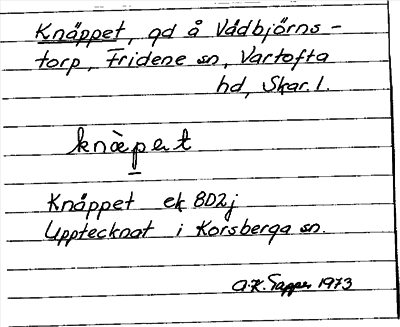 Knäppet, gd å Vådbjörns-
torp, Fridene sn, Vartofta
hd, Skar. l.
knäpet
Knäppet ek 8D2j
Upptecknat i Korsberga sn.
A.K. 1973